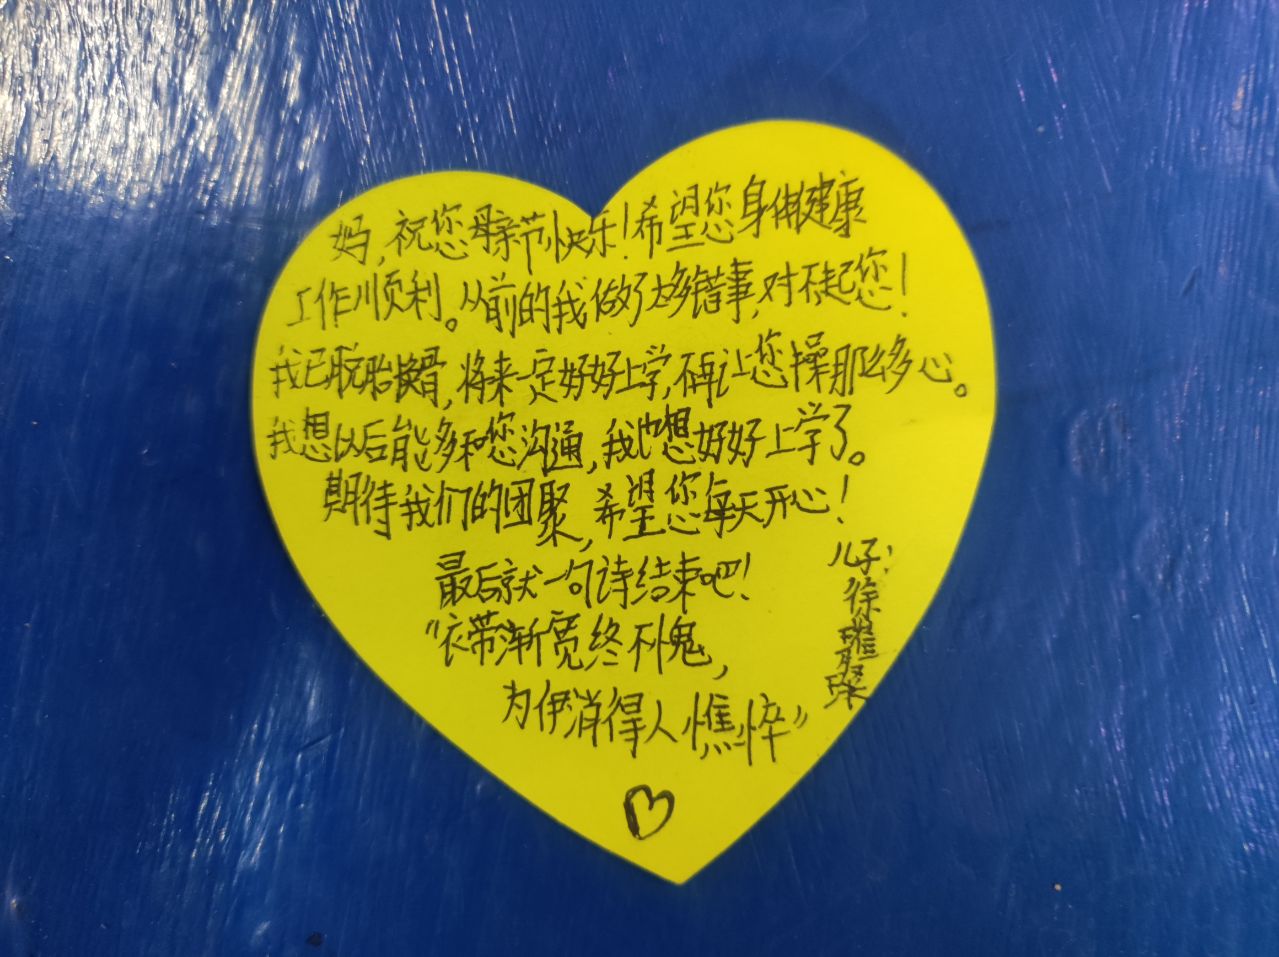 妈，祝您母亲节快乐！希望您身体健康
工作顺利。从前的我做了太多错事，对不起您！
我已脱胎换骨，将来一定好好上学，不再让您操那么多心。
我想以后能多和您沟通，我也想好好上学了。
期待我们的团聚，希望您每天开心！
最后就一句诗结束吧！
“衣带渐宽终不愧，
为伊消得人憔悴”
儿子：
徐
璨